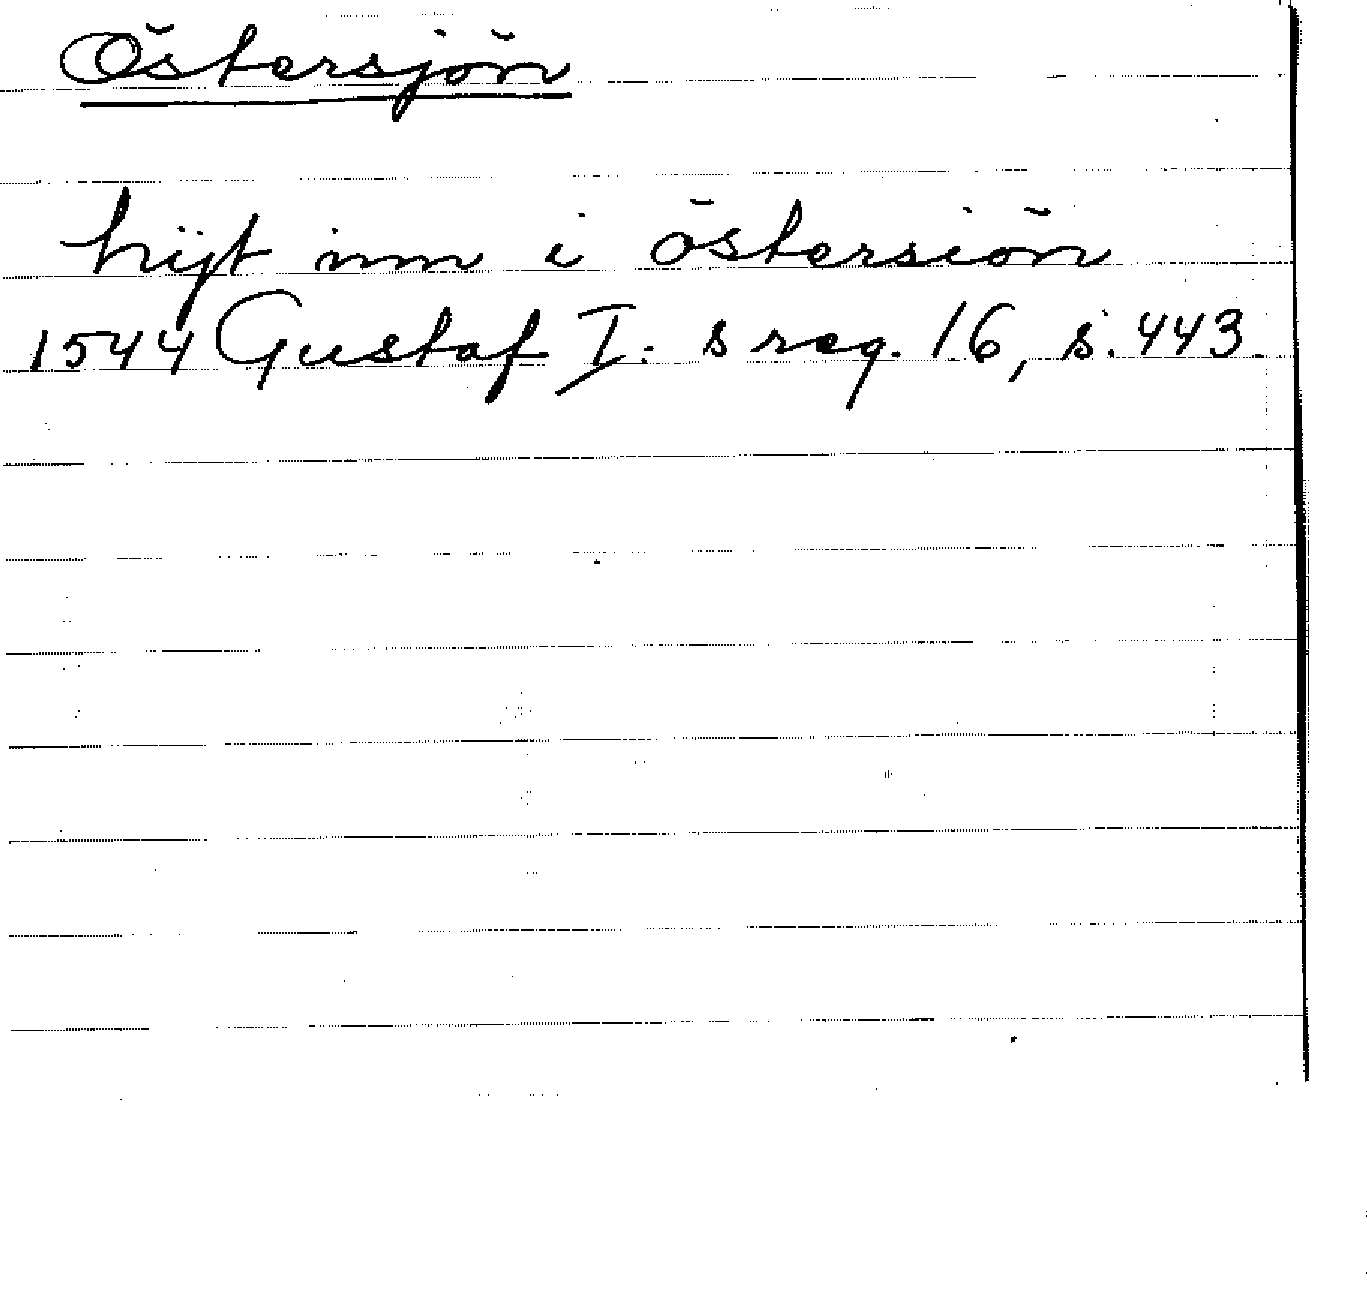 Östersjön
hijt inn i östersiön
1544 Gustaf I: s reg. 16, s. 443.